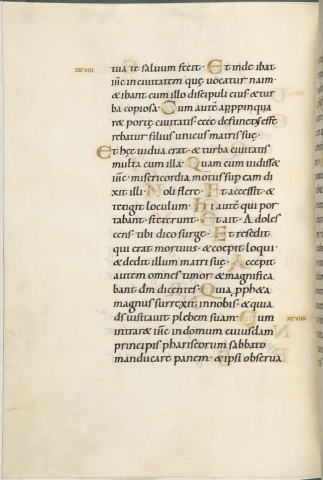 XCVIII
tua te saluum fecit · Et inde ibat
ihc in ciuitatem que uocatur naim ·
& ibant cum illo discipuli eius · & tur
ba copiosa · Cum autē appinqua
ret porte ciuitatis · ecce defunctus effe
rebatur filius unicus matris suę ·
Et hęc uidua erat · & turba ciuitatis
multa cum illa · Quam cum uidisset
ihc · misericordia motus sup eam di
xit illi · Noli flere · Et accessit · &
tetigit loculum · Hi autē qui por
tabant steterunt · Et ait · Adoles
cens tibi dico surge · Et resedit
qui erat mortuus · & coepit loqui ·
& dedit illum matri suę · Accepit
autem omnes timor · & magnifica
bant dm dicentes · Quia ppheta
magnus surrexit in nobis · & quia
ds uisitauit plebem suam · Cum
intraret ihc in domum cuiusdam
principis phariseorum sabbato
manducare panem · & ipsi obserua